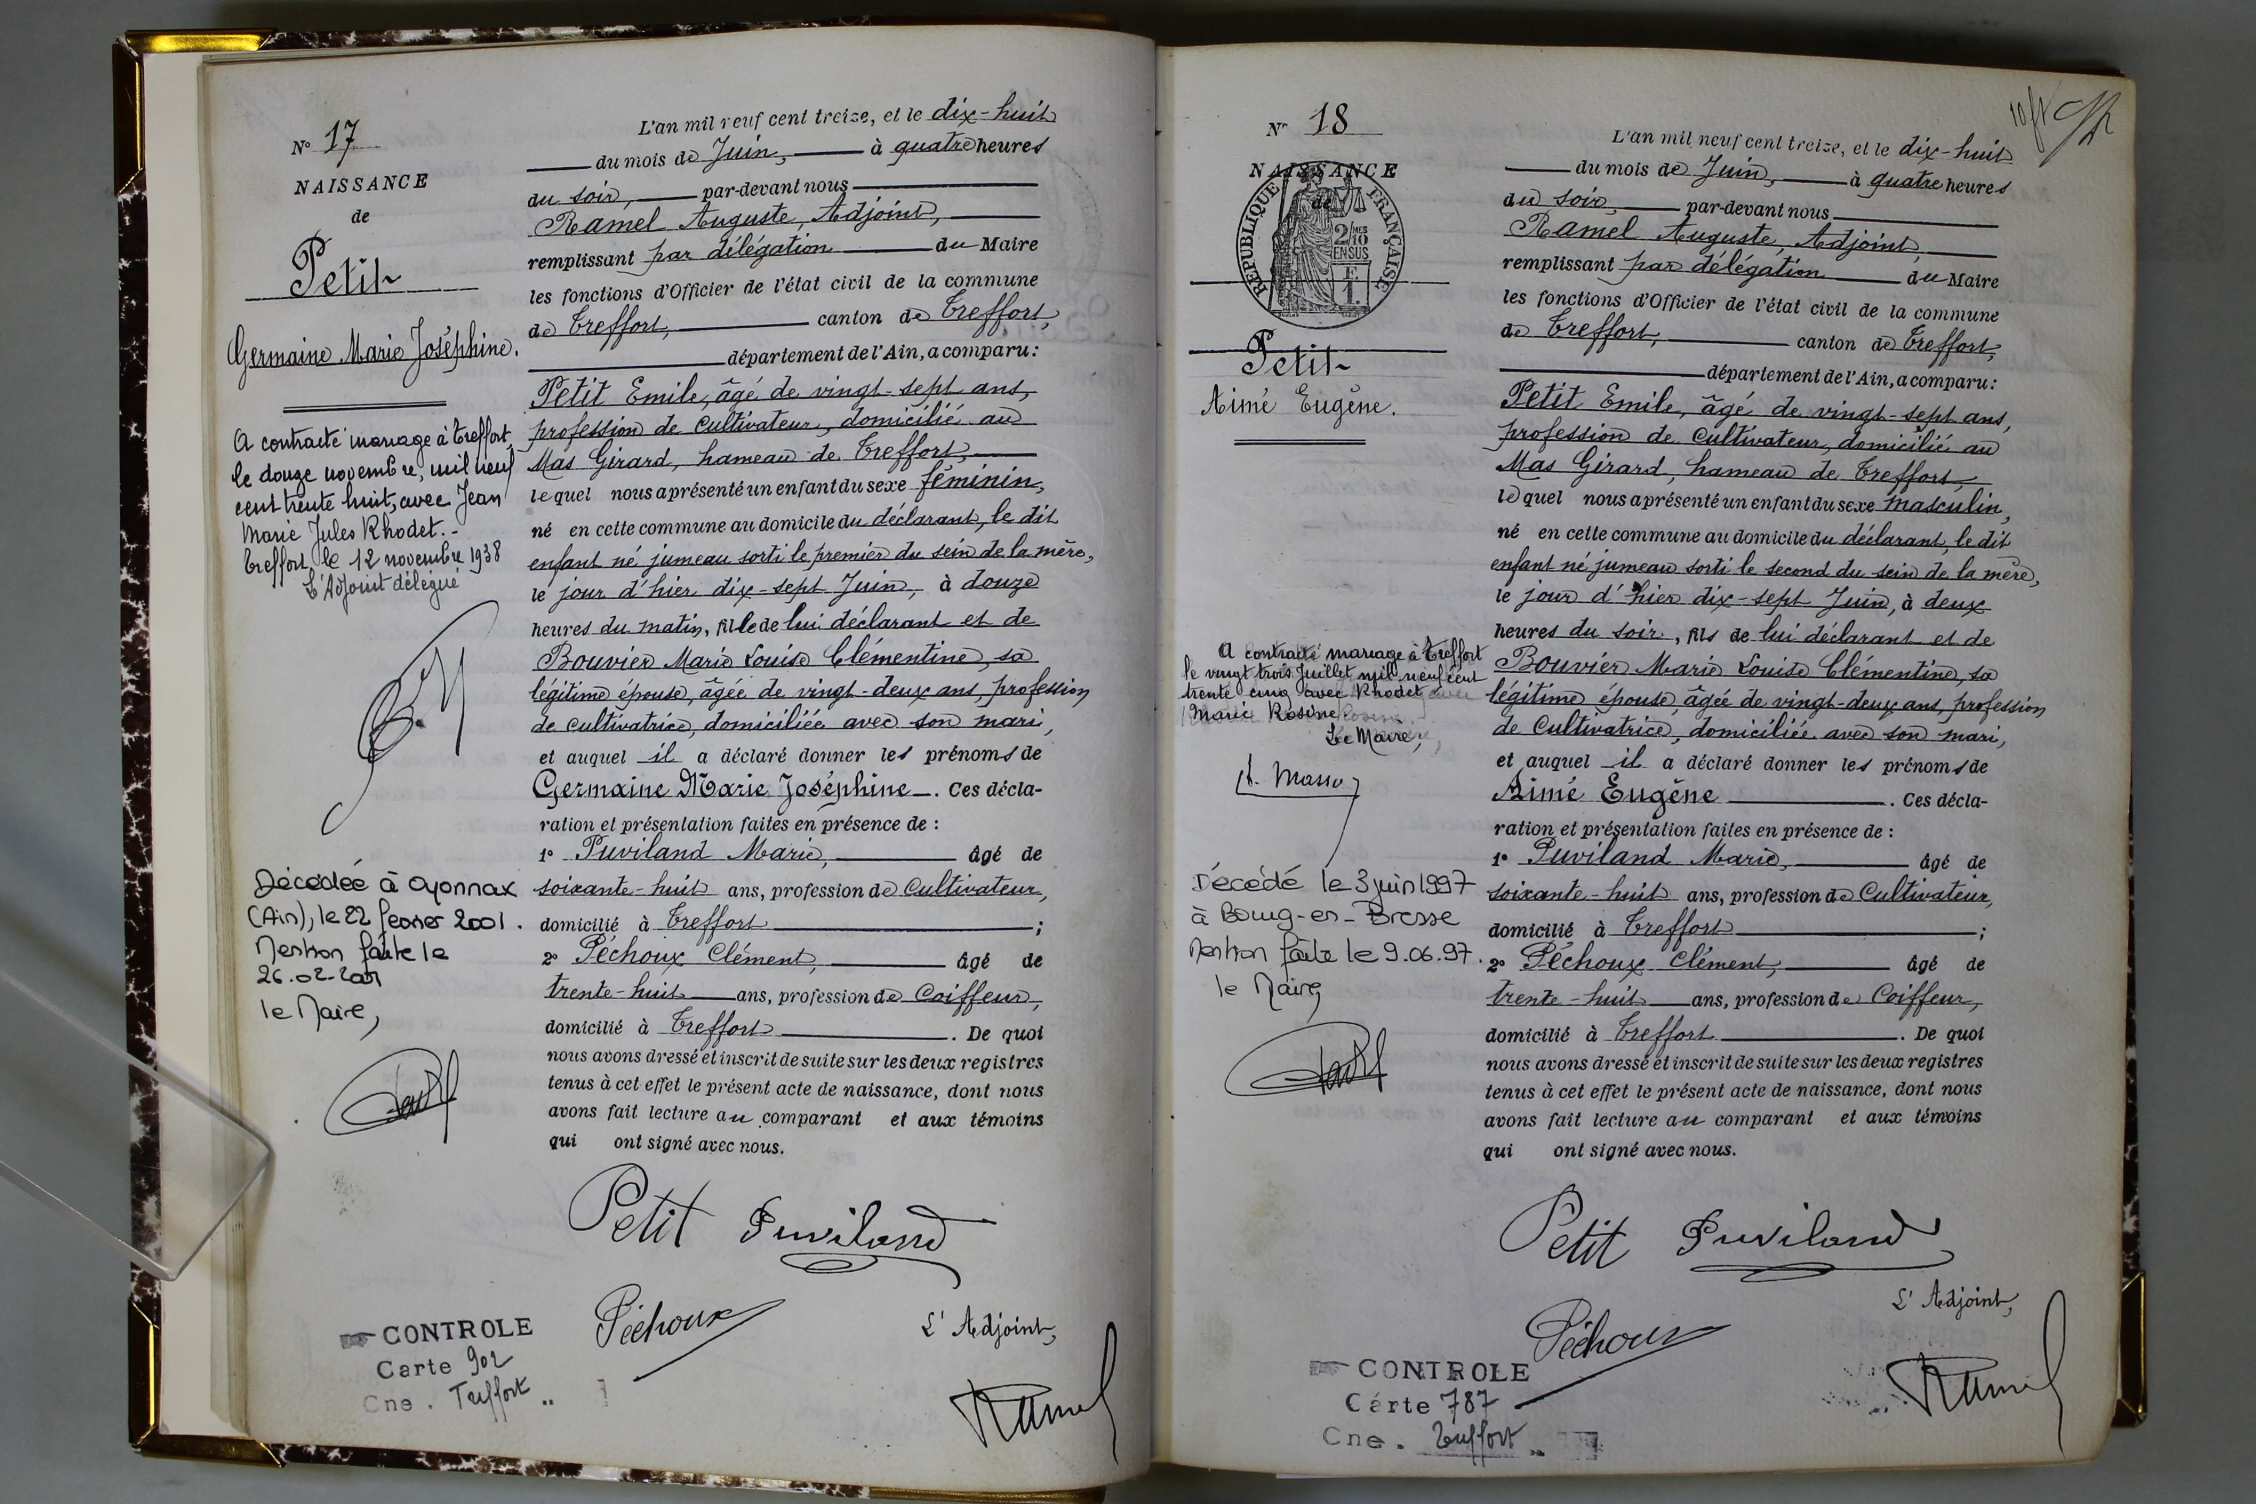 N° 17
NAISSANCE
de
Petit
Germaine Marie Joséphine.
A contracté mariage à Treffort,
le douze novembre, mil neuf
cent trente huit, avec Jean
Marie Jules Rhodet.-
Treffort, le 12 novembre 1938
L'Adjoint délégué
Décédée à Oyonnax
(Ain), le 22 février 2001.
Mention faite le
26.02-2001
le Maire,
CONTROLE
Carte 902
Cne. Treffort
L'an mil neuf cent treize, et le dix-huit
du mois de Juin, à quatre heures
du soir, par-devant nous
Ramel Auguste, Adjoint,
remplissant par délégation du Maire
les fonctions d'Officier de l'état civil de la commune
de Treffort, canton de Treffort,
département de l'Ain, a comparu:
Petit Emile, âgé de vingt-sept ans,
profession de cultivateur, domicilié au
Mas Girard, hameau de Treffort,
lequel nous a présenté un enfant du sexe féminin,
né en cette commune au domicile du déclarant, le dit
enfant né jumeau sorti le premier du sein de la mère,
le jour d'hier dix-sept Juin, à douze
heures du matin, fille de lui déclarant et de
Bouvier Marie Louise Clémentine, sa
légitime épouse, âgée de vingt-deux ans, profession
de cultivatrice, domiciliée avec son mari,
et auquel il a déclaré donner les prénoms de
Germaine Marie Joséphine. Ces décla-
ration et présentation faites en présence de :
1° Puviland Marie, âgé de
soixante-huit ans, profession de Cultivateur,
domicilié à Treffort ;
2° Péchoux Clément, âgé de
trente-huit ans, profession de Coiffeur,
domicilié à Treffort. De quoi
nous avons dressé et inscrit de suite sur les deux registres
tenus à cet effet le présent acte de naissance, dont nous
avons fait lecture au comparant et aux témoins
qui ont signé avec nous.
Petit Puviland
Péchoux L'Adjoint,
Ramel
N° 18
NAISSANCE
de
RÉPUBLIQUE FRANÇAISE
2/10 MES
EN SUS
E.
1.
Petit
Aimé Eugène.
A contracté mariage à Treffort
le vingt trois Juillet mil neuf cent
trente cinq avec Rhodet
Marie Rosine
Le Maire,
Décédé le 3 juin 1997
à Bourg-en-Bresse
Mention faite le 9.06.97.
le Maire,
CONTROLE
Carte 787
Cne. Treffort
L'an mil neuf cent treize, et le dix-huit
du mois de Juin, à quatre heures
du soir, par-devant nous
Ramel Auguste, Adjoint,
remplissant par délégation du Maire
les fonctions d'Officier de l'état civil de la commune
de Treffort, canton de Treffort,
département de l'Ain, a comparu:
Petit Emile, âgé de vingt-sept ans,
profession de cultivateur, domicilié au
Mas Girard, hameau de Treffort,
lequel nous a présenté un enfant du sexe masculin,
né en cette commune au domicile du déclarant, le dit
enfant né jumeau sorti le second du sein de la mère,
le jour d'hier dix-sept Juin, à deux
heures du soir, fils de lui déclarant et de
Bouvier Marie Louise Clémentine, sa
légitime épouse, âgée de vingt-deux ans, profession
de Cultivatrice, domiciliée avec son mari,
et auquel il a déclaré donner les prénoms de
Aimé Eugène. Ces décla-
ration et présentation faites en présence de :
1° Puviland Marie, âgé de
soixante-huit ans, profession de Cultivateur,
domicilié à Treffort ;
2° Péchoux Clément, âgé de
trente-huit ans, profession de Coiffeur,
domicilié à Treffort. De quoi
nous avons dressé et inscrit de suite sur les deux registres
tenus à cet effet le présent acte de naissance, dont nous
avons fait lecture au comparant et aux témoins
qui ont signé avec nous.
Petit Puviland
L'Adjoint,
Péchoux
Ramel